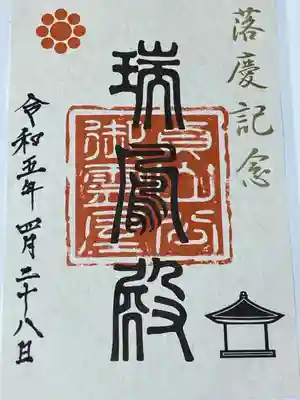 落慶記念
瑞鳳殿
貞山公
御霊屋
令和五年 四月二十八日